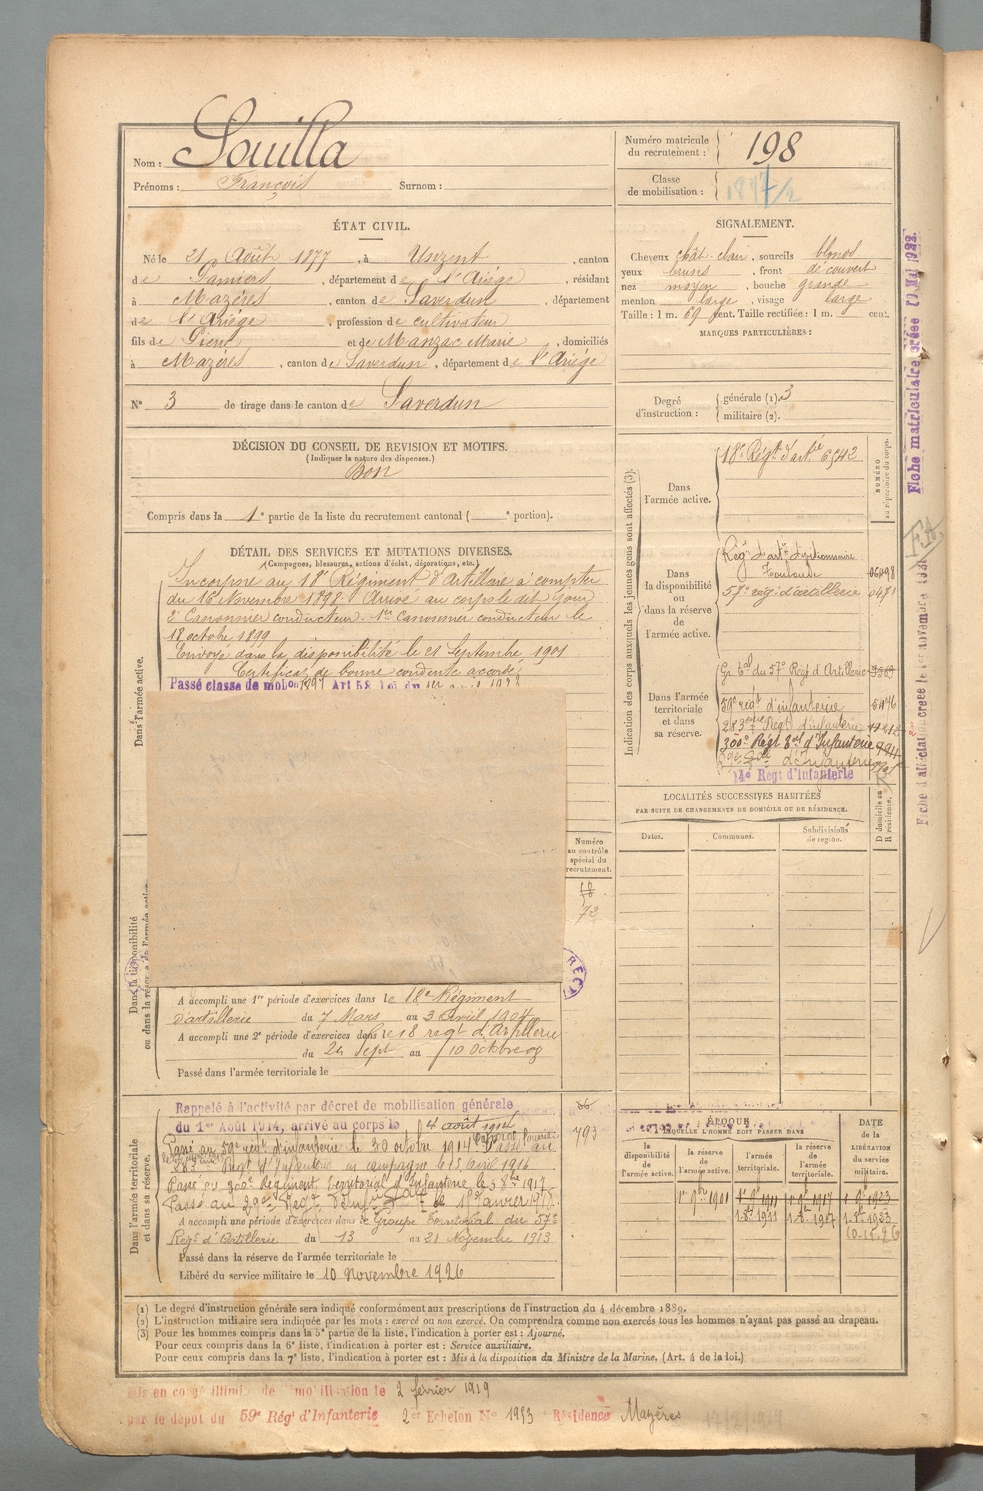 Nom : Souilla
Prénoms : François Surnom :
Numéro matricule du recrutement : 198
Classe de mobilisation : 1897/2
ÉTAT CIVIL.
Né le 21 Août 1877, à Unzent, canton
de Pamiers, département de l'Ariège, résidant
à Mazères, canton de Saverdun, département
de l'Ariège, profession de cultivateur
fils de Pierre et de Manzac Marie, domiciliés
à Mazères, canton de Saverdun, département de l'Ariège
N° 3 de tirage dans le canton de Saverdun
SIGNALEMENT.
Cheveux chât. clair, sourcils blonds
yeux bruns, front découvert
nez moyen, bouche grande
menton large, visage large
Taille : 1 m. 69 cent. Taille rectifiée : 1 m. cent.
MARQUES PARTICULIÈRES :
Degré d'instruction : générale (1). 3
militaire (2).
DÉCISION DU CONSEIL DE REVISION ET MOTIFS.
(Indiquer la nature des dispenses.)
Bon
Compris dans la 1e partie de la liste du recrutement cantonal ( e portion).
DÉTAIL DES SERVICES ET MUTATIONS DIVERSES.
(Campagnes, blessures, actions d'éclat, décorations, etc.)
Dans l'armée active.
Incorporé au 18e Régiment d'Artillerie à compter
du 16 Novembre 1898. Arrivé au corps le dit jour
2e Canonnier conducteur. 1er Canonnier conducteur le
18 octobre 1899
Envoyé dans la disponibilité le 21 Septembre 1901
Certificat de bonne conduite accordé
Passé classe de mobon 1897 Art 58 Loi du
Dans la disponibilité ou dans la réserve de l'armée active.
Numéro au contrôle spécial du recrutement.
72
A accompli une 1re période d'exercices dans le 18e Régiment
d'artillerie du 7 Mars au 3 Avril 1904
A accompli une 2e période d'exercices dans le 18 regt d'Artillerie
du 24 Sept au 10 Octobre 08
Passé dans l'armée territoriale le
Dans l'armée territoriale et dans sa réserve.
Rappelé à l'activité par décret de mobilisation générale
du 1er Août 1914, arrivé au corps le 4 août 1914
793
Passé au 59e régt d'infanterie le 30 octobre 1914 Passé au
283 Régt d'Infanterie en campagne le 15 avril 1916
Passé au 300e Régiment Territorial d'Infanterie le 5 8bre 1917
A accompli une période d'exercices dans le Groupe Territorial du 57e
Régt d'Artillerie du 13 au 21 Novembre 1913
Passé dans la réserve de l'armée territoriale le
Libéré du service militaire le 10 Novembre 1926
Indication des corps auxquels les jeunes gens sont affectés (3).
NUMÉRO au répertoire du corps.
Dans l'armée active.
18e Régt d'artie 6542
Dans la disponibilité ou dans la réserve de l'armée active.
Toulouse
57e rég. d'artillerie 0471
Dans l'armée territoriale et dans sa réserve.
Gr. tal du 57e Régt d'Artillerie
59e régt d'infanterie 5476
283eme Régt d'infanterie
300e Régt tal d'Infanterie
14e Régt d'Infanterie
LOCALITÉS SUCCESSIVES HABITÉES
PAR SUITE DE CHANGEMENTS DE DOMICILE OU DE RÉSIDENCE.
Dates. Communes. Subdivisions de région. D domicile ou R résidence.
ÉPOQUE
À LAQUELLE L'HOMME DOIT PASSER DANS
DATE de la LIBÉRATION du service militaire.
la disponibilité de l'armée active. la réserve de l'armée active. l'armée territoriale. la réserve de l'armée territoriale.
1er 9bre 1901 1er 9re 1911 1er 9re 1917 1er 9re 1923
1-8re 1911 1-8re 1917 1-8re 1923
10-11-26
(1) Le degré d'instruction générale sera indiqué conformément aux prescriptions de l'instruction du 4 décembre 1889.
(2) L'instruction militaire sera indiquée par les mots : exercé ou non exercé. On comprendra comme non exercés tous les hommes n'ayant pas passé au drapeau.
(3) Pour les hommes compris dans la 5e partie de la liste, l'indication à porter est : Ajourné.
Pour ceux compris dans la 6e liste, l'indication à porter est : Service auxiliaire.
Pour ceux compris dans la 7e liste, l'indication à porter est : Mis à la disposition du Ministre de la Marine. (Art. 4 de la loi.)
mis en congé illimité de mobilisation le 2 février 1919
par le dépot du 59e Régt d'Infanterie 2e Echelon No 1953 Résidence Mazères
Fiche matriculaire créée 10 Mai 1922.
Fiche d'affectation créée le 1er novembre